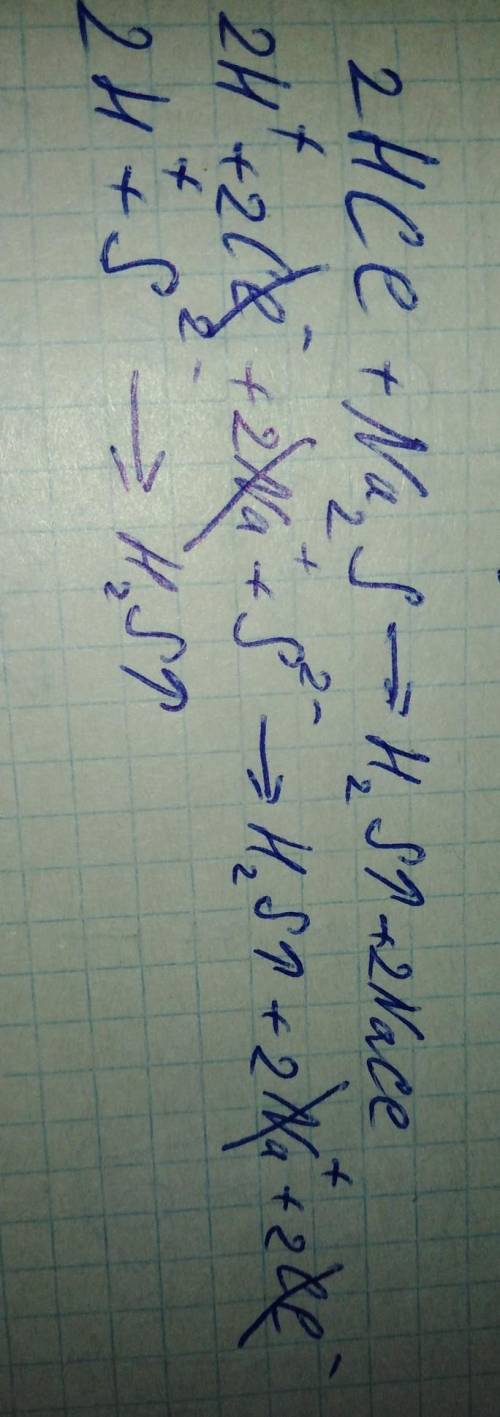 2HCl + Na₂S → H₂S↑ + 2NaCl
2H⁺ + 2Cl⁻ + 2Na⁺ + S²⁻ → H₂S↑ + 2Na⁺ + 2Cl⁻
2H⁺ + S²⁻ → H₂S↑